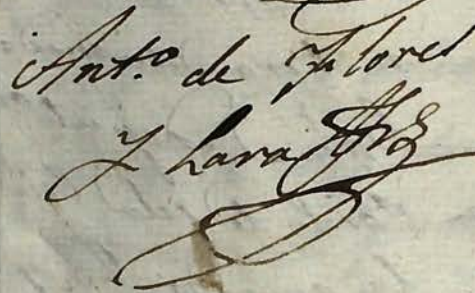 Ant.º de Flores
Y Lara